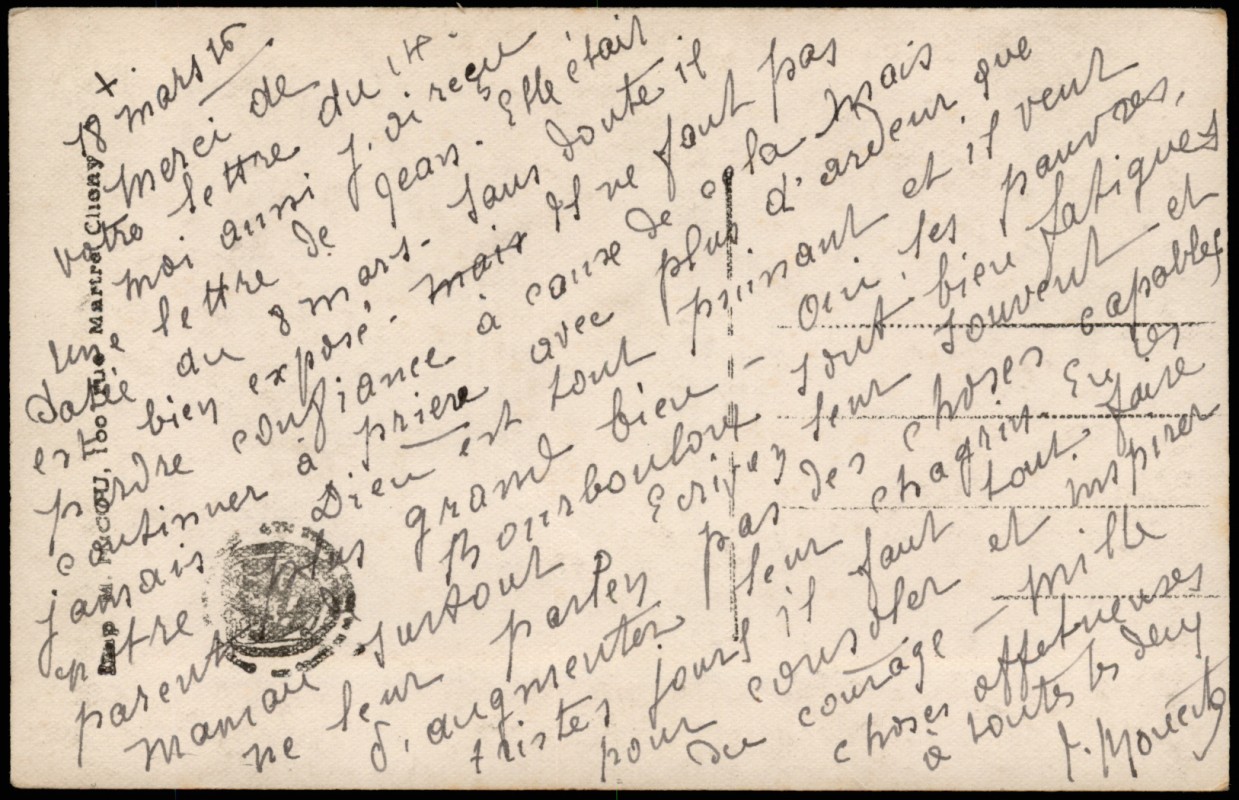 +
18 mars 15
Merci de
votre lettre du 14.
moi aussi j'ai reçu
une lettre de Jean. Elle était
datée du 8 mars. Sans doute il
est bien exposé. mais il ne faut pas
perdre confiance à cause de cela mais
continuer à prière avec plus d'ardeur que
jamais Dieu est tout puissant et il veut
notre plus grand bien - oui, les pauvres,
parents Bourboulon sont bien fatigués
maman surtout Ecrivez leur souvent et
ne leur parlez pas des choses capables
d'augmenter leur chagrin. En ces
tristes jours il faut tout faire
pour consoler et inspirer
du courage - mille
choses affectueuses
à toutes les deux
Imp RICOU, rue Martre Clichy